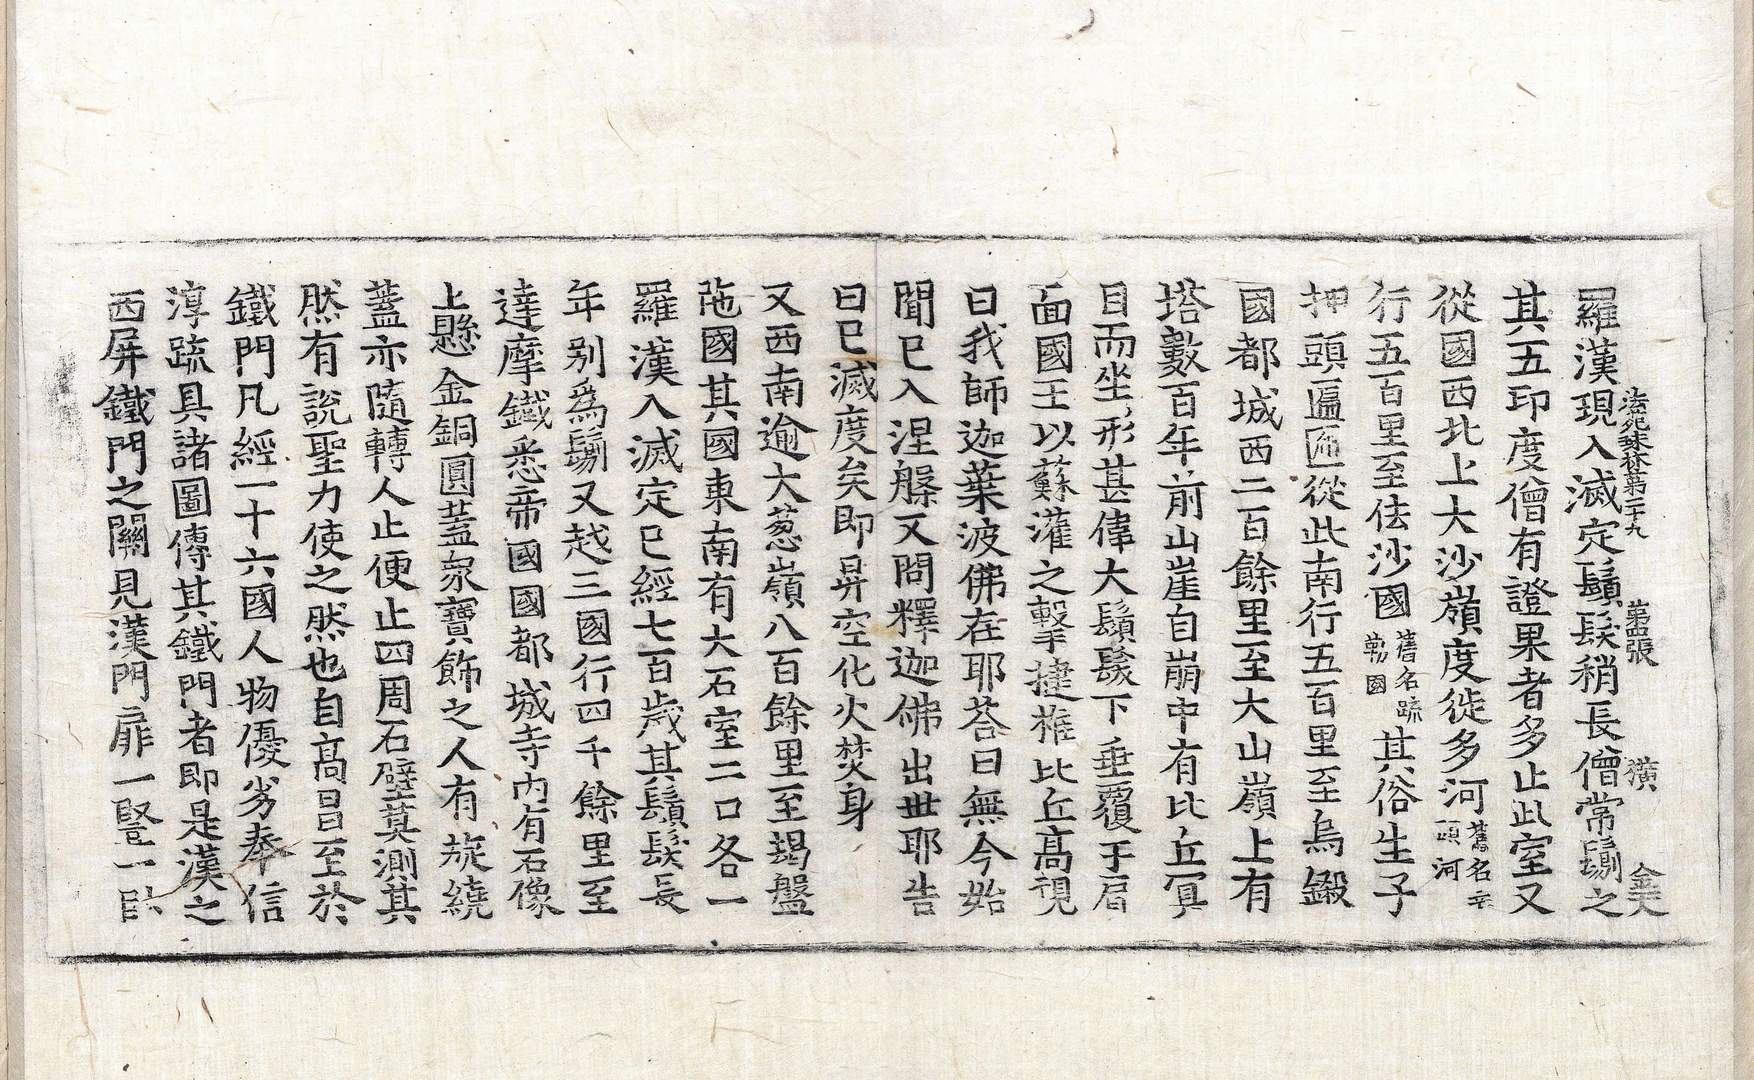 法苑珠林第二十九　第四張　獚　金天
羅漢現入滅定鬚髮稍長僧常剃之
其五印度僧有證果者多止此室又
從國西北上大沙嶺度徙多河舊名辛頭河
行五百里至佉沙國舊名疏勒國其俗生子
押頭匾㔸從此南行五百里至烏鎩
國都城西二百餘里至大山嶺上有
塔數百年前山崖自崩中有比丘冥
目而坐形甚偉大鬚髮下垂覆于肩
面國王以蘇灌之擊揵椎比丘高視
曰我師迦葉波佛在耶荅曰無今始
聞已入涅槃又問釋迦佛出世耶告
曰已滅度矣即昇空化火焚身
又西南逾大葱嶺八百餘里至朅盤
陁國其國東南有大石室二口各一
羅漢入滅定已經七百歲其鬚髮長
年別爲鬀又越三國行四千餘里至
達摩鐵悉帝國國都城寺內有石像
上懸金銅圓蓋衆寶飾之人有旋繞
蓋亦隨轉人止便止四周石壁莫測其
然有說聖力使之然也自高昌至於
鐵門凡經一十六國人物優劣奉信
淳踈具諸圖傳其鐵門者即是漢之
西屏鐵門之關見漢門扉一豎一臥